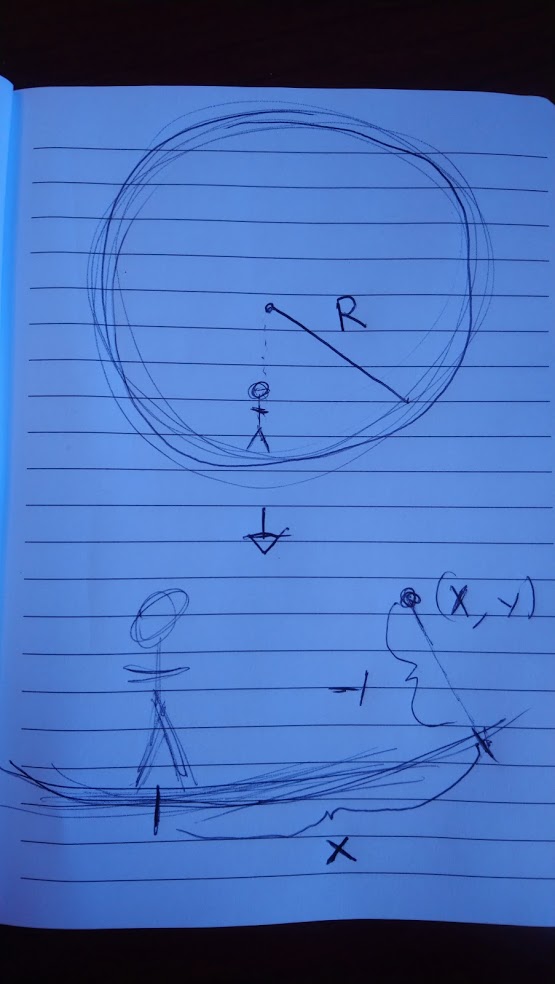 R
(X, Y)
X